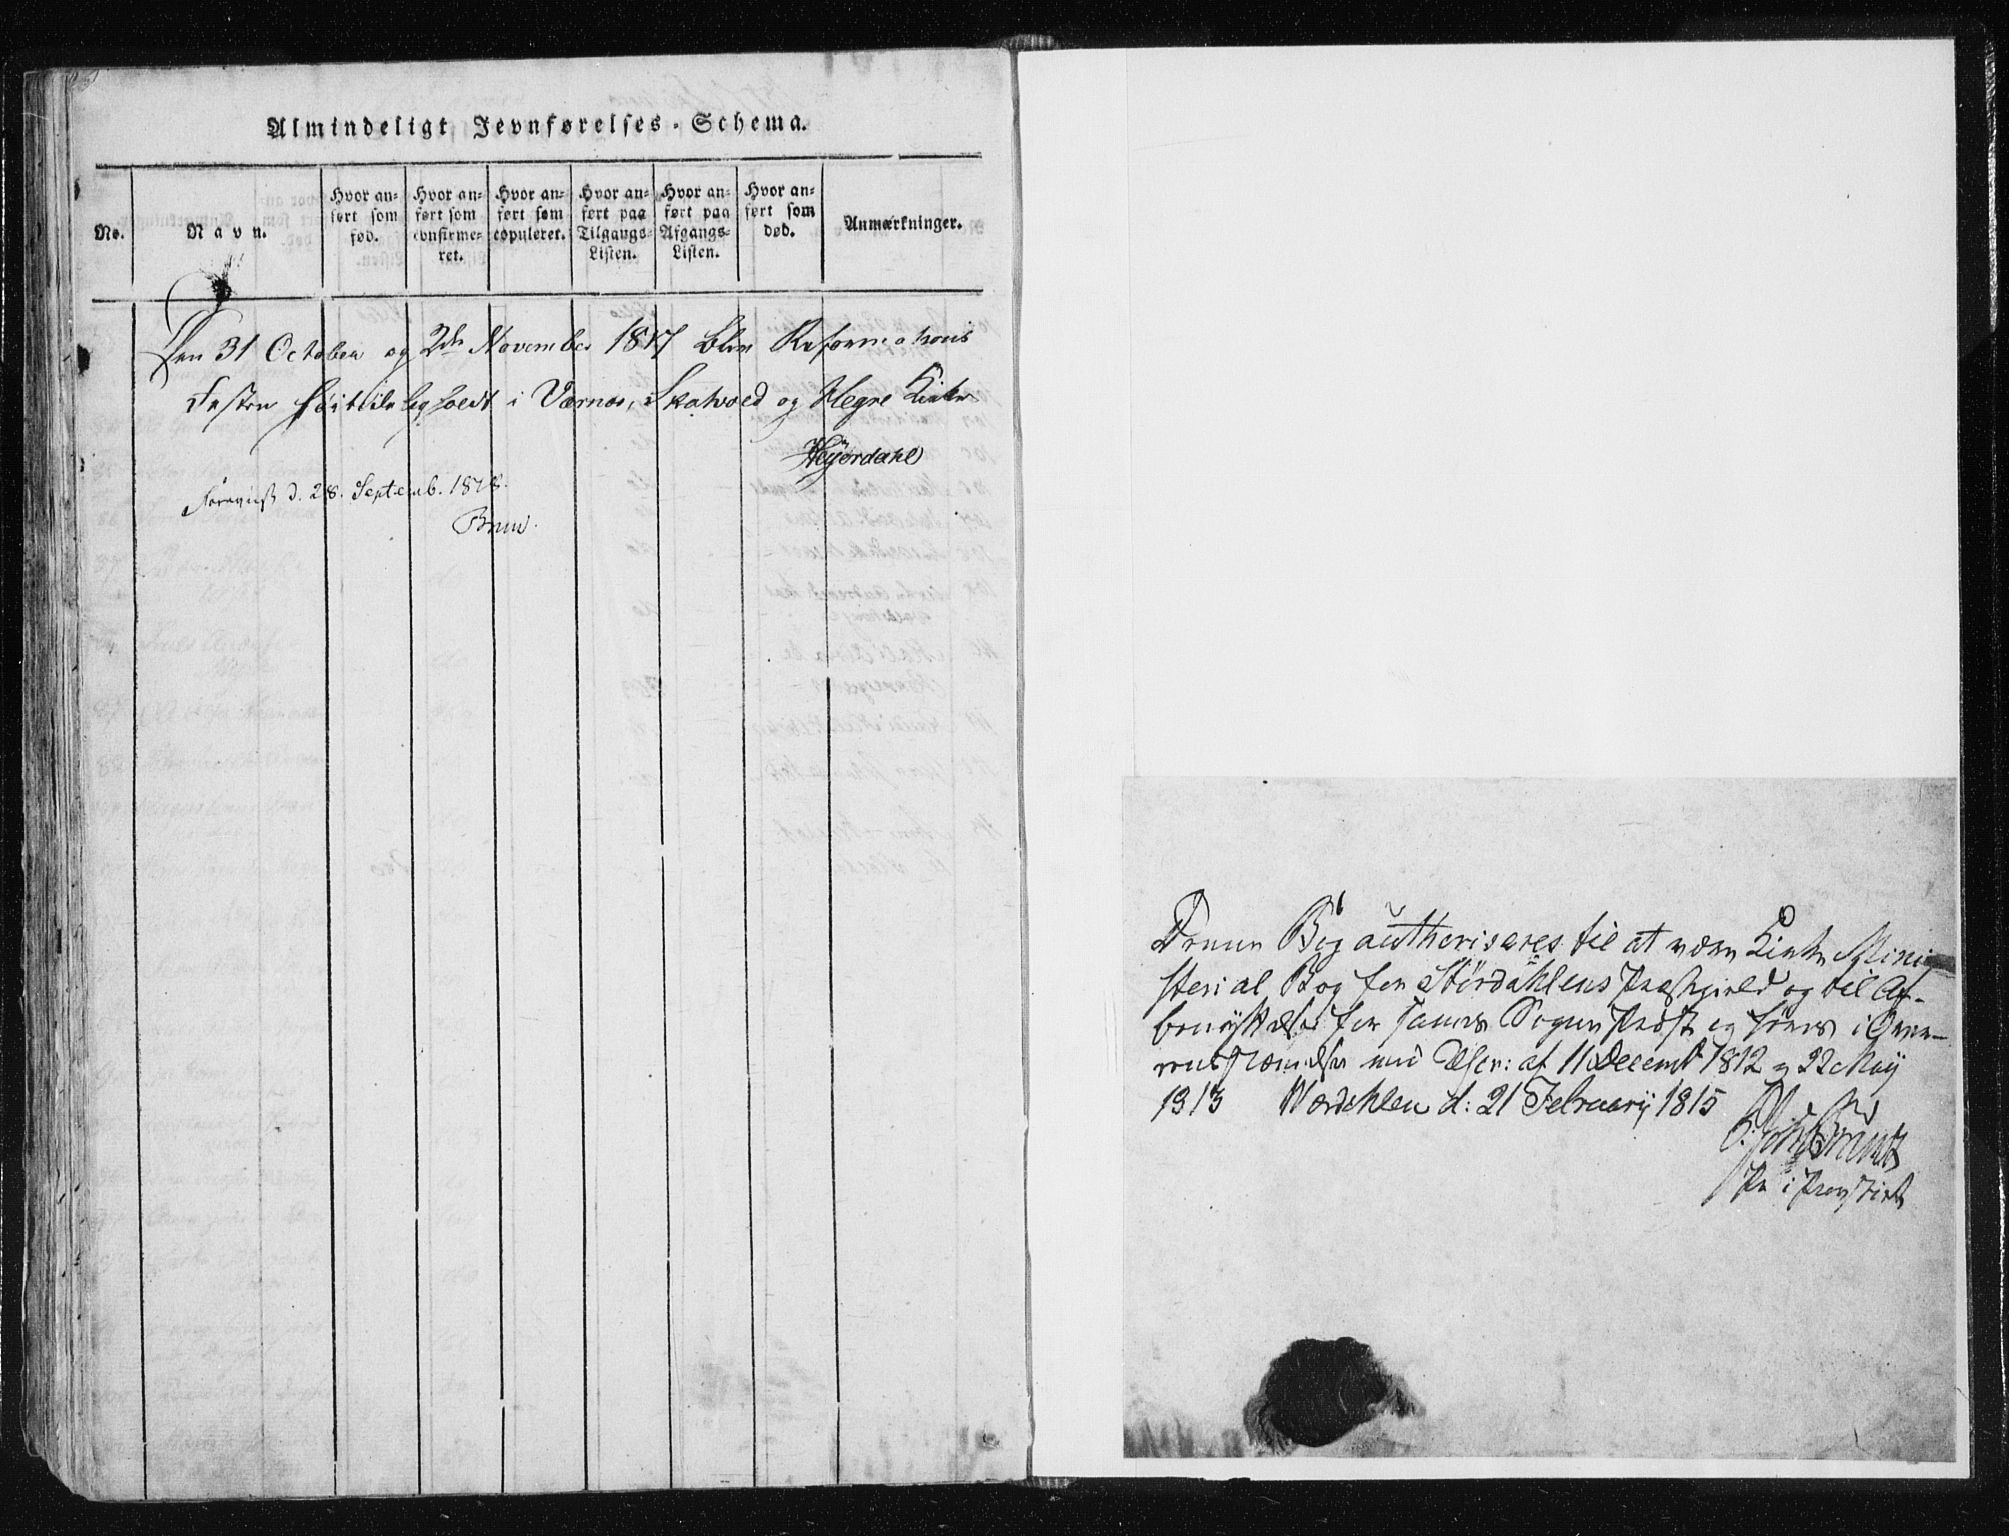 Almindeligt Jevnførelses-Schema.
No.
Navn.
Hvor an-
ført som
fød.
Hvor an-
ført som
confirme-
ret.
Hvor an-
ført som
copuleret.
Hvor an-
ført paa
Tilgangs-
Listen.
Hvor an-
ført paa
Afgangs-
Listen.
Hvor an-
ført som
død.
Anmærkninger.
Den 31 October og 2den November 1817 blev Reformations
Festen høitidelig holdt i Værnes, Skatvold og Hegre Kirker
Heyerdahl
Foreviist d. 28. Septemb. 1818.
Brun.
Denne Bog authoriseres til at være Kirke Mini
sterial Bog for Størdahlens Præstegield og til Af-
benyttelse for sammes Sogne Præst og føres i Over-
eensstemmelse med Rescr: af 11 Decemb 1812 og 22 May
1813 Wærdahlen d: 21 February 1815